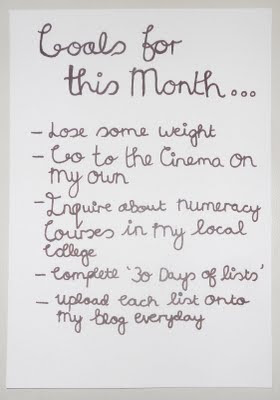 Goals for
this Month...
- Lose some weight
- Go to the Cinema on
my own
- Inquire about numeracy
Courses in my local
College
- Complete '30 Days of lists'
- upload each list onto
my blog everyday